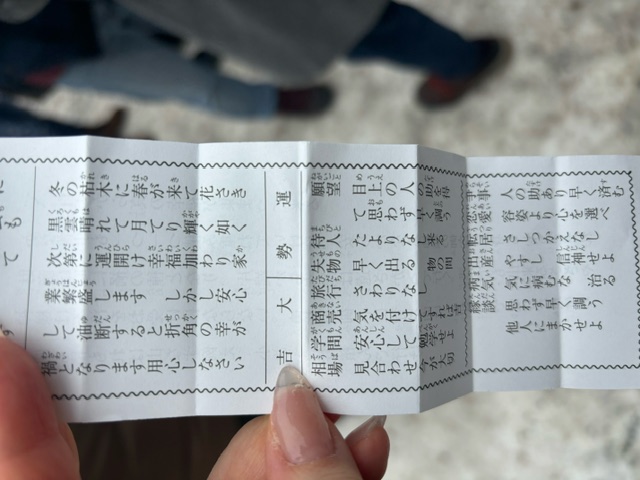 冬の枯木に春が来て花さき
黒雲晴れて月てり輝く如く
次第に運開け幸福加わり家
業繁盛します しかし安心
して油断すると折角の幸が
禍となります用心しなさい
運勢 大吉
願望 目上の人の助を得
て思わず早く調う
待人 たよりなし来る
失物 早く出る 物の間
旅行 さわりなし
商売 気を付けてすれば吉
学問 安心して勉学せよ
相場 見合わせ 今が大切
争事 人の助あり早く済む
恋愛 容姿より心を選べ
転居 さしつかえなし
出産 やすし 信神せよ
病気 気に病むな 治る
縁談 思わず早く調う
他人にまかせよ